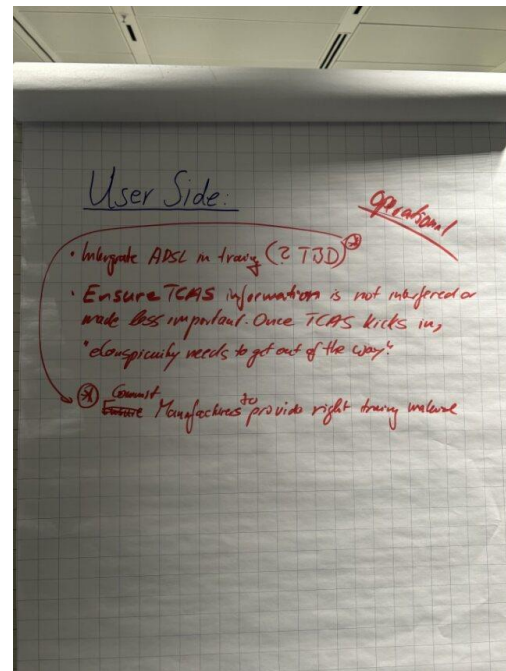 User Side:
Operational
• Intergrate ADSL in traing (? TBD) *
• Ensure TCAS information is not interfered or
made less important. Once TCAS kicks in,
"eConspicuity needs to get out of the way".
* Commit
Ensure Manufacturers to provide right traing material